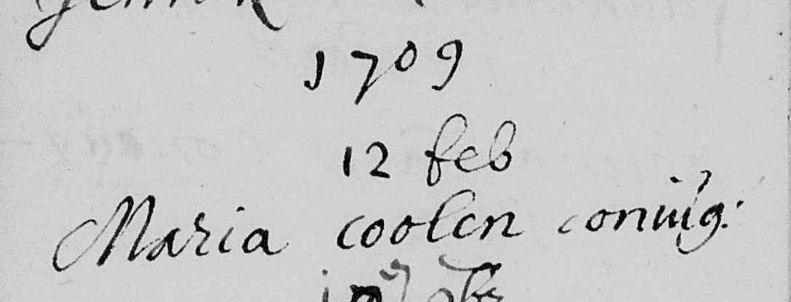 1709
12 feb
Maria coolen coniũg: